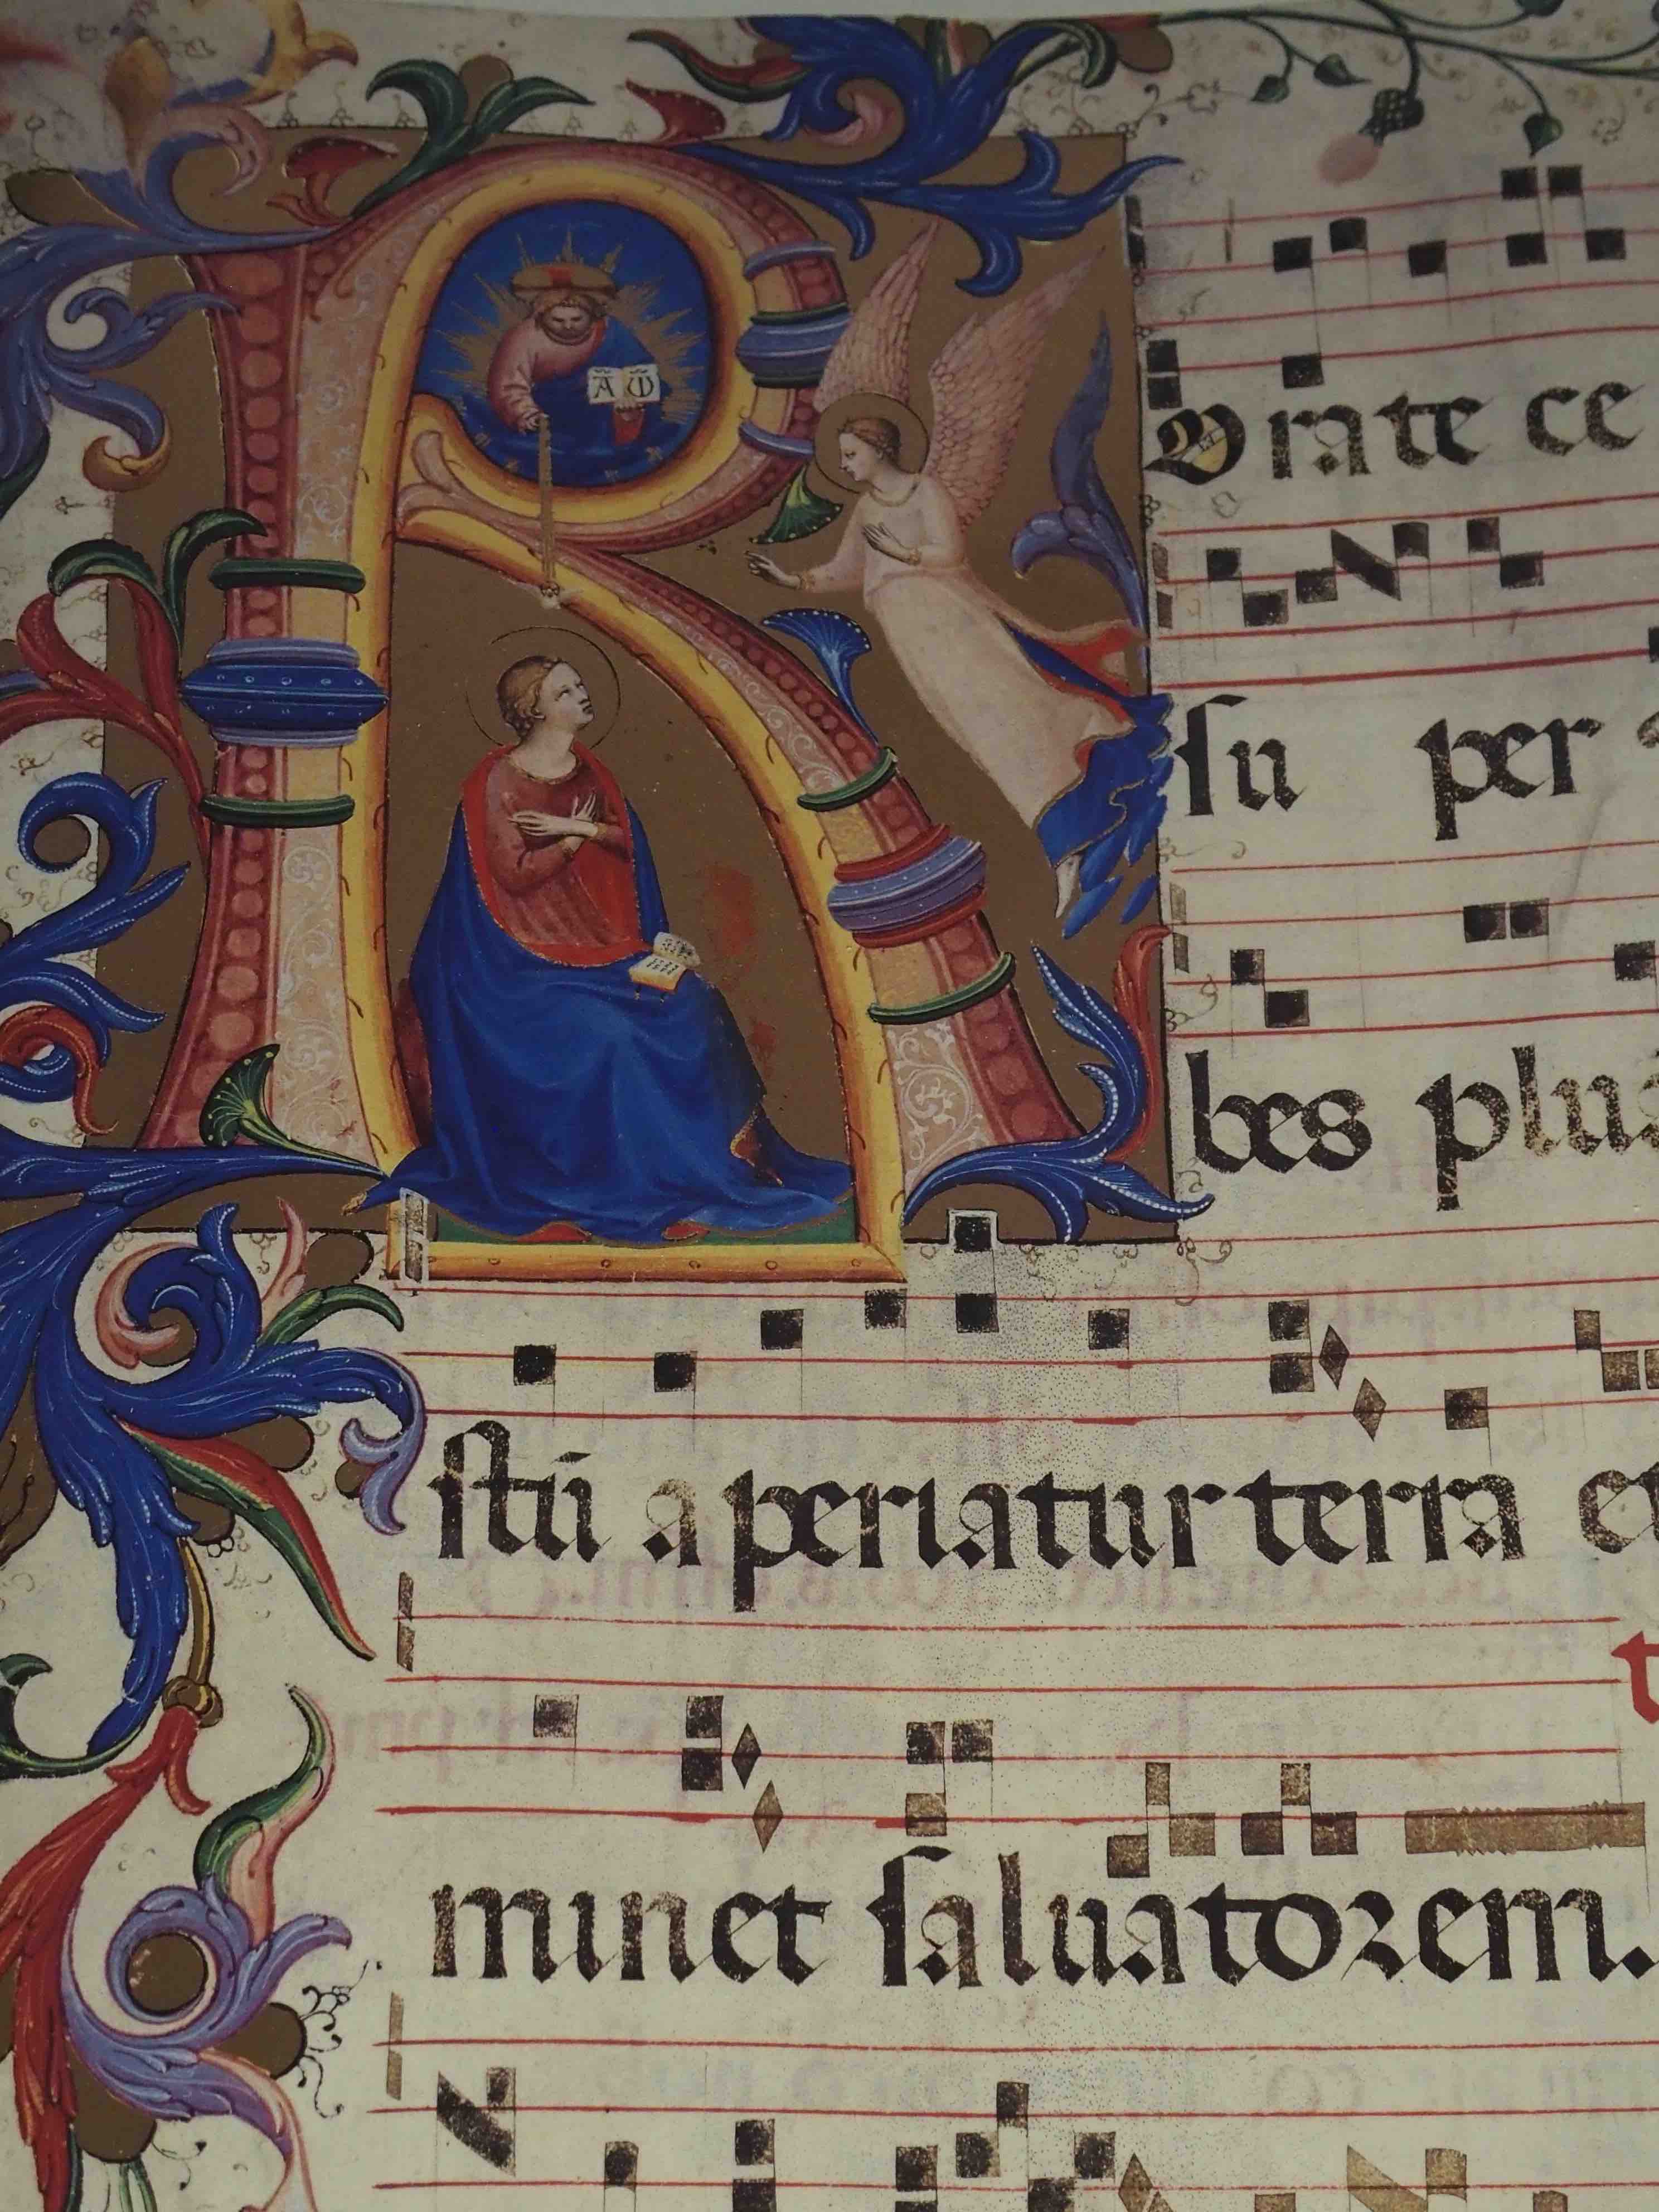 A ω
ROrate ce
ſu per
bes plu
ſtū aperiatur terra
minet ſaluatorem.